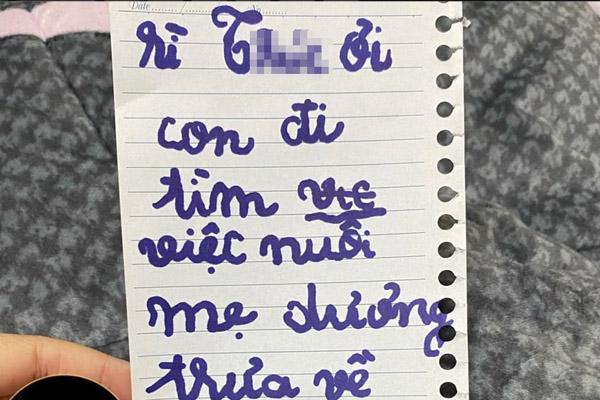 Date ......./......... No........
hỉ T ởi
con đi
tìm vie
việc nuôi
mẹ dưỡng
trưa về